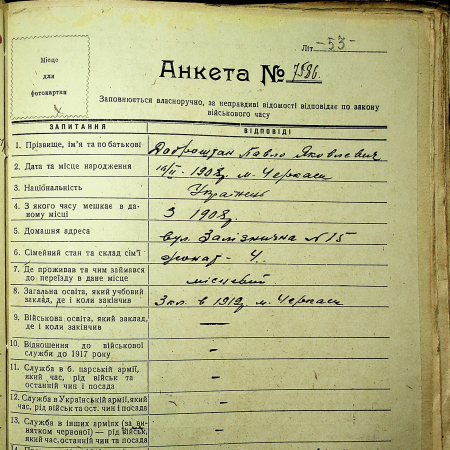 Літ -53-
Місце
для
фотокартки
Анкета № 7586.
Заповнюється власноручно, за неправдиві відомості відповідає по закону
військового часу
ЗАПИТАННЯ ВІДПОВІДІ
1. Прізвище, ім'я та по батькові Доброштан Павло Яковлевич
2. Дата та місце народження 1908р. м. Черкаси
3. Національність Українець
4. З якого часу мешкає в да-
ному місці З 1908р.
5. Домашня адреса вул. Залізнична №15
6. Сімейний стан та склад сім'ї жонат - 4.
7. Де проживав та чим займався
до переїзду в дане місце місцевий
8. Загальна освіта, який учбовий
заклад, де і коли закінчив 3 кл. в 1919р. м. Черкаси
9. Військова освіта, який заклад,
де і коли закінчив —
10. Відношення до військової
служби до 1917 року -
11. Служба в б. царській армії,
який час, рід військ та
останній чин і посада -
12. Служба в Українській армії, який
час, рід військ та ост. чин і посада -
13. Служба в інших арміях (за ви-
нятком червоної) — рід військ,
який час, останній чин та посада -